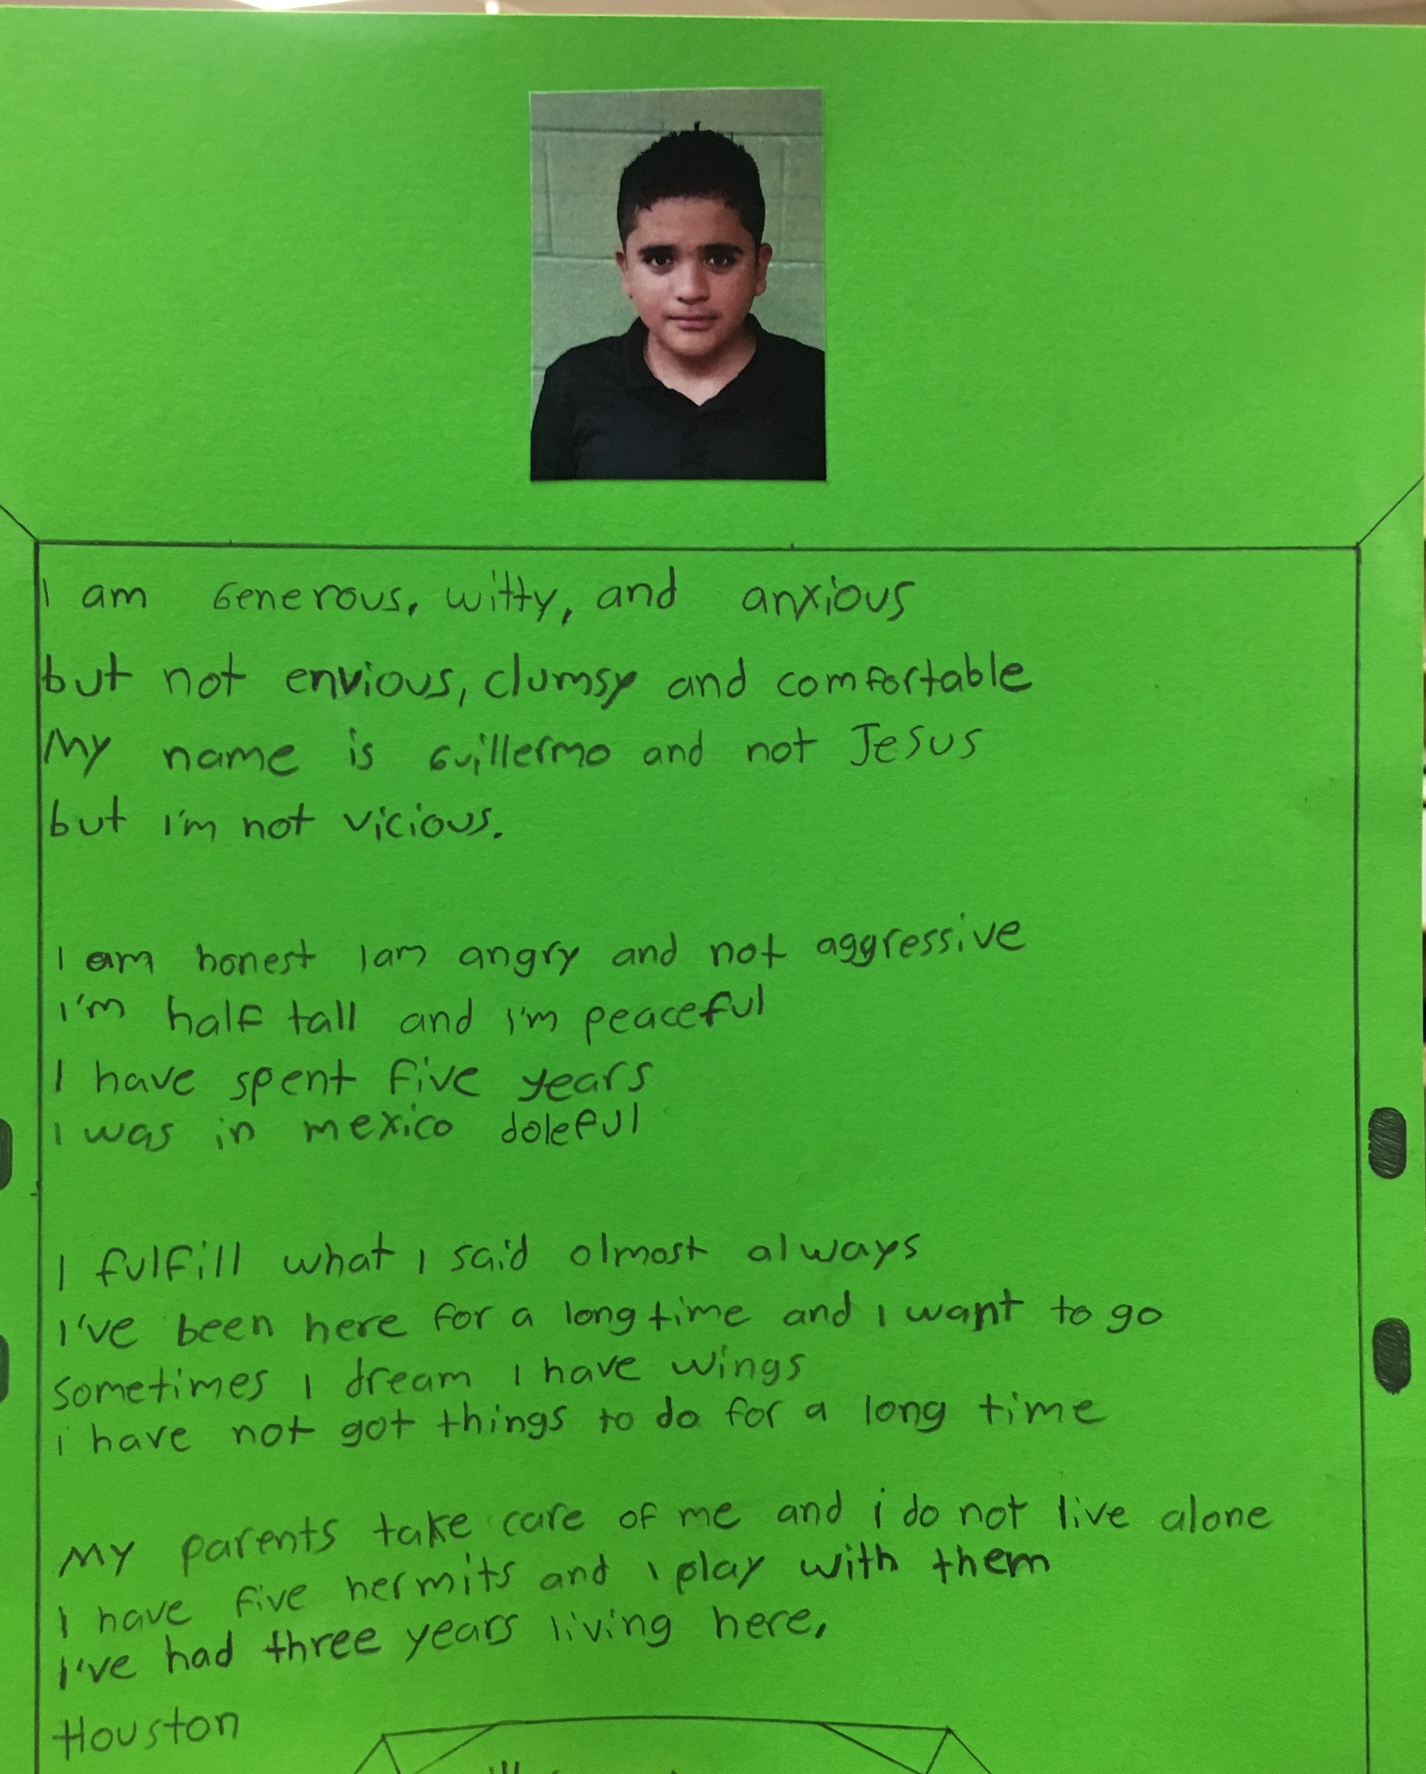 I am Generous, witty, and anxious
but not envious, clumsy and comfortable
My name is Guillermo and not Jesus
but I'm not vicious.
I am honest I am angry and not aggressive
I'm half tall and I'm peaceful
I have spent five years
I was in mexico doleful
I fulfill what I said olmost always
I've been here for a long time and I want to go
sometimes I dream I have wings
i have not got things to do for a long time
My parents take care of me and i do not live alone
I have five hermits and I play with them
I've had three years living here,
Houston